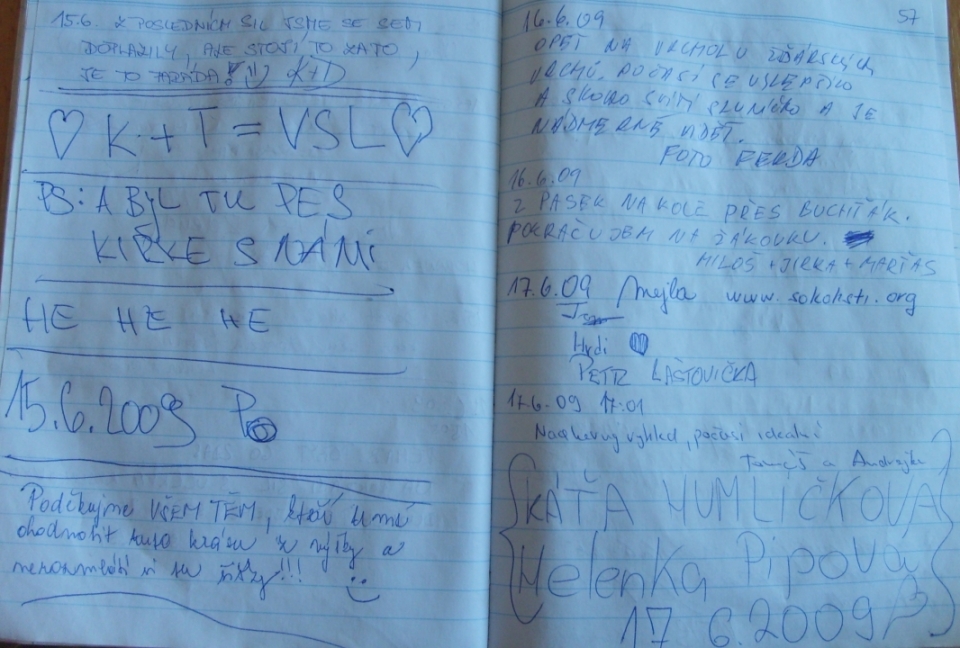 15.6. Z POSLEDNÍCH SIL JSME SE SEM
DOPLAZILY, ALE STOJÍ TO ZA TO,
JE TO PARÁDA! K+T
K + T = VSL
PS: A BYL TU PES
KIRKE S NÁMI
HE HE HE
15.6.2009 Po
Poděkujme VŠEM TĚM, kteří umí
ohodnotit tuto krásu z výšky a
!!!
57
16.6.09
OPĚT NA VRCHOLU ŽĎÁRSKÝCH
VRCHŮ. POČASÍ SE VYLEPŠILO
A SKORO SVÍTÍ SLUNÍČKO A JE
NÁDHERNĚ VIDĚT.
FOTO FERDA
16.6.09
Z PASEK NA KOLE PŘES BUCHŤÁK.
POKRAČUJEM NA ŽÁKOVKU.
MILOŠ + JIRKA + MARŤAS
17.6.09 Mejla www.sokolsti.org
Hydi
PETR LAŠTOVIČKA
17.6.09 17:01
Nádherný výhled, počasí ideální
Tomáš a Andrejka
KÁŤA HUMLÍČKOVÁ
Helenka Pipová
17.6.2009